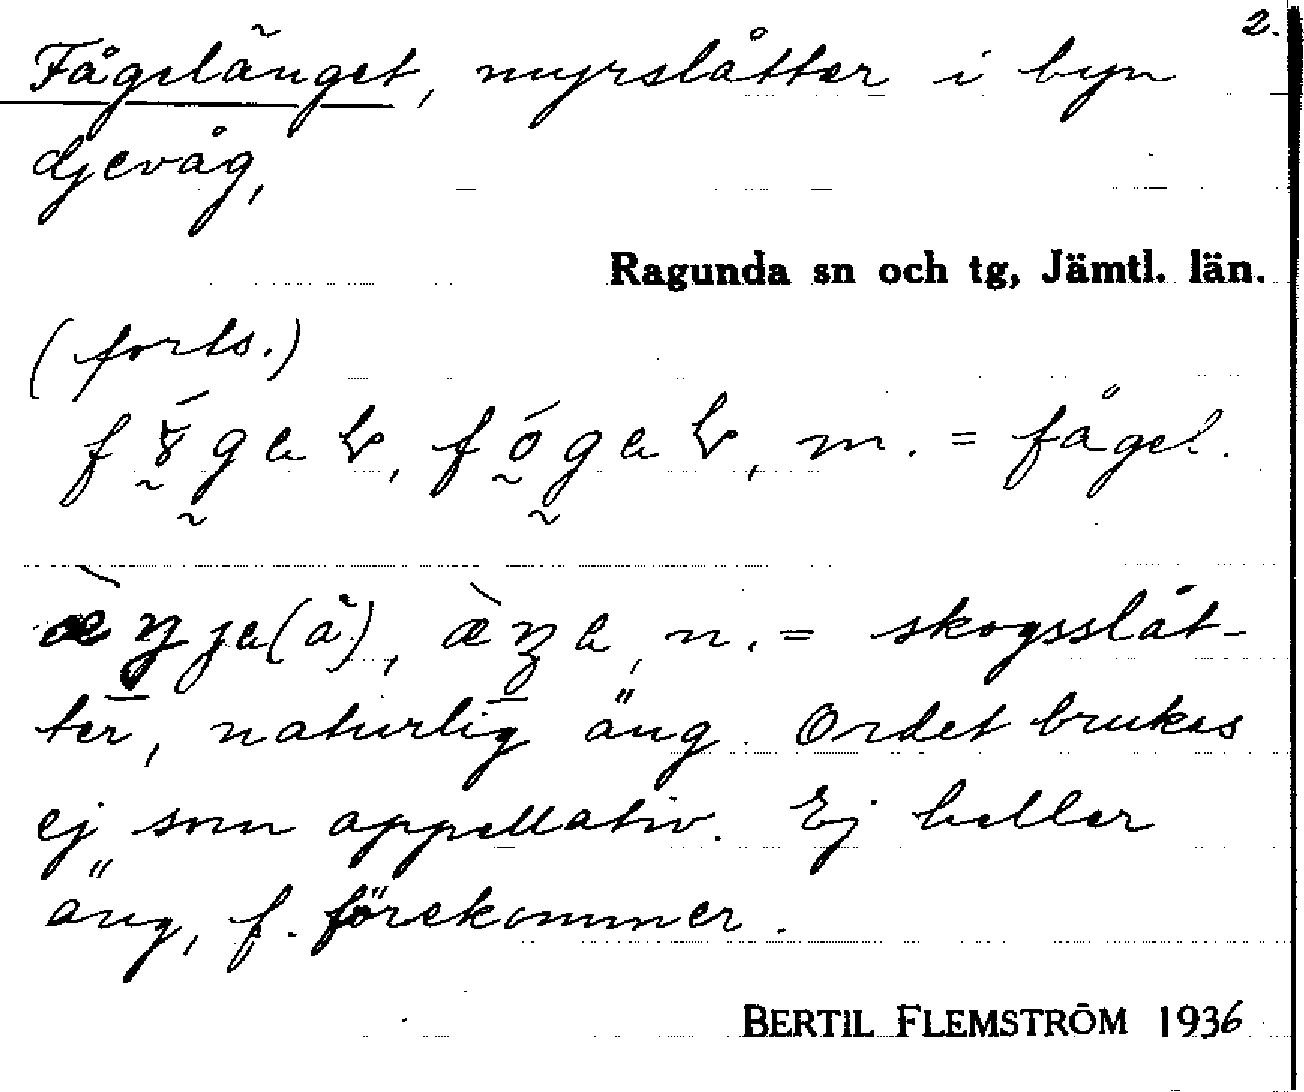 2.
Fågelänget, myrslåtter i byn
djevåg,
Ragunda sn och tg, Jämtl. län.
(forts.)
m. = fågel.
n. = skogsslåt-
ter, naturlig äng. Ordet brukas
ej som appellativ. Ej heller
äng, f. förekommer.
BERTIL FLEMSTRÖM 1936